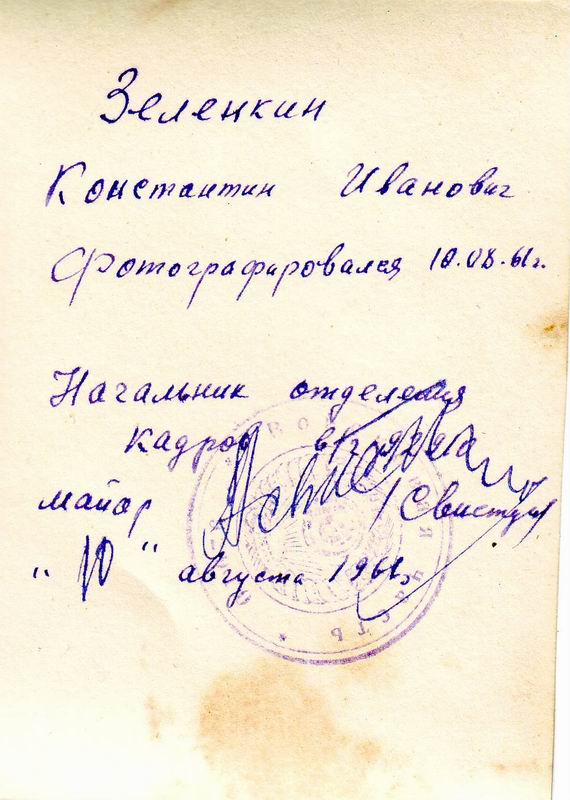 Зеленкин
Константин Иванович
Фотографировался 10.08.61г.
Начальник отделения
кадров в/г
майор /Свистун/
"10" августа 1961г